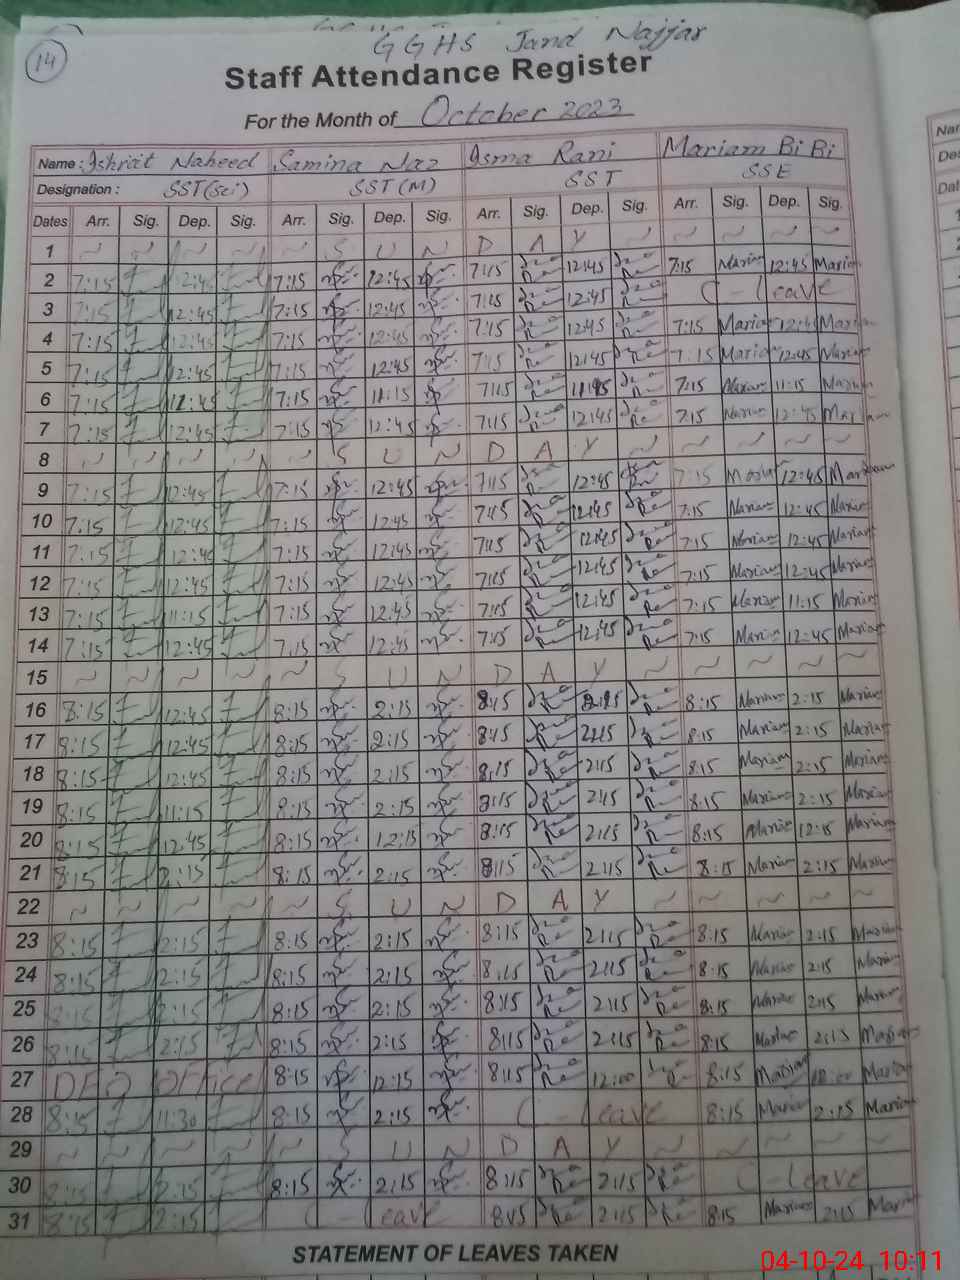 14
GGHS Jand Najjar
Staff Attendance Register
For the Month of October 2023
Name : Ishrat Naheed Samina Naz Isma Rani Mariam BiBi
Designation : SST(Sci) SST(M) SST SSE
Dates Arr. Sig. Dep. Sig. Arr. Sig. Dep. Sig. Arr. Sig. Dep. Sig. Arr. Sig. Dep. Sig.
1 ~ ~ ~ ~ ~ S U N D A Y ~ ~ ~ ~ ~
2 7:15 2:45 7:15 12:45 7:15 12:45 7:15 Mariam 12:45 Mariam
3 7:15 12:45 7:15 12:45 7:15 12:45 C - leave
4 7:15 12:45 7:15 12:45 7:15 12:45 7:15 Mariam 12:45 Mariam
5 7:15 12:45 7:15 12:45 7:15 12:45 7:15 Mariam 12:45 Mariam
6 7:15 7:15 11:15 7:15 7:15 Mariam 11:15 Mariam
7 7:15 12:45 7:15 12:45 7:15 12:45 7:15 Mariam 12:45 Mariam
8 ~ ~ ~ ~ ~ S U N D A Y ~ ~ ~ ~ ~
9 7:15 12:45 7:15 12:45 7:15 12:45 7:15 Mariam 12:45 Mariam
10 7:15 12:45 7:15 12:45 7:15 12:45 7:15 Mariam 12:45 Mariam
11 7:15 12:45 7:15 12:45 7:15 12:45 7:15 Mariam 12:45 Mariam
12 7:15 12:45 7:15 12:45 7:15 12:45 7:15 Mariam 12:45 Mariam
13 7:15 11:15 7:15 12:45 7:15 12:45 7:15 Mariam 11:15 Mariam
14 7:15 12:45 7:15 12:45 7:15 12:45 7:15 Mariam 12:45 Mariam
15 ~ ~ ~ ~ ~ S U N D A Y ~ ~ ~ ~ ~
16 8:15 12:45 8:15 2:15 8:15 2:15 8:15 Mariam 2:15 Mariam
17 8:15 12:45 8:15 2:15 8:15 2:15 8:15 Mariam 2:15 Mariam
18 8:15 12:45 8:15 2:15 8:15 2:15 8:15 Mariam 2:15 Mariam
19 8:15 11:15 8:15 2:15 8:15 2:15 8:15 Mariam 2:15 Mariam
20 8:15 12:45 8:15 12:15 8:15 2:15 8:15 Mariam 12:15 Mariam
21 8:15 2:15 8:15 2:15 8:15 2:15 8:15 Mariam 2:15 Mariam
22 ~ ~ ~ ~ ~ S U N D A Y ~ ~ ~ ~ ~
23 8:15 2:15 8:15 2:15 8:15 2:15 8:15 Mariam 2:15 Mariam
24 8:15 2:15 8:15 2:15 8:15 2:15 8:15 Mariam 2:15 Mariam
25 8:15 2:15 8:15 2:15 8:15 2:15 8:15 Mariam 2:15 Mariam
26 8:15 2:15 8:15 2:15 8:15 2:15 8:15 Mariam 2:15 Mariam
27 DEO Office 8:15 12:15 8:15 12:00 8:15 Mariam Mariam
28 8:15 11:30 8:15 2:15 C - leave 8:15 Mariam 2:15 Mariam
29 ~ ~ ~ ~ ~ S U N D A Y ~ ~ ~ ~ ~
30 8:15 2:15 8:15 2:15 8:15 2:15 C - leave
31 8:15 2:15 C - leave 8:15 2:15 8:15 Mariam 2:15 Mariam
STATEMENT OF LEAVES TAKEN
04-10-24 10:11